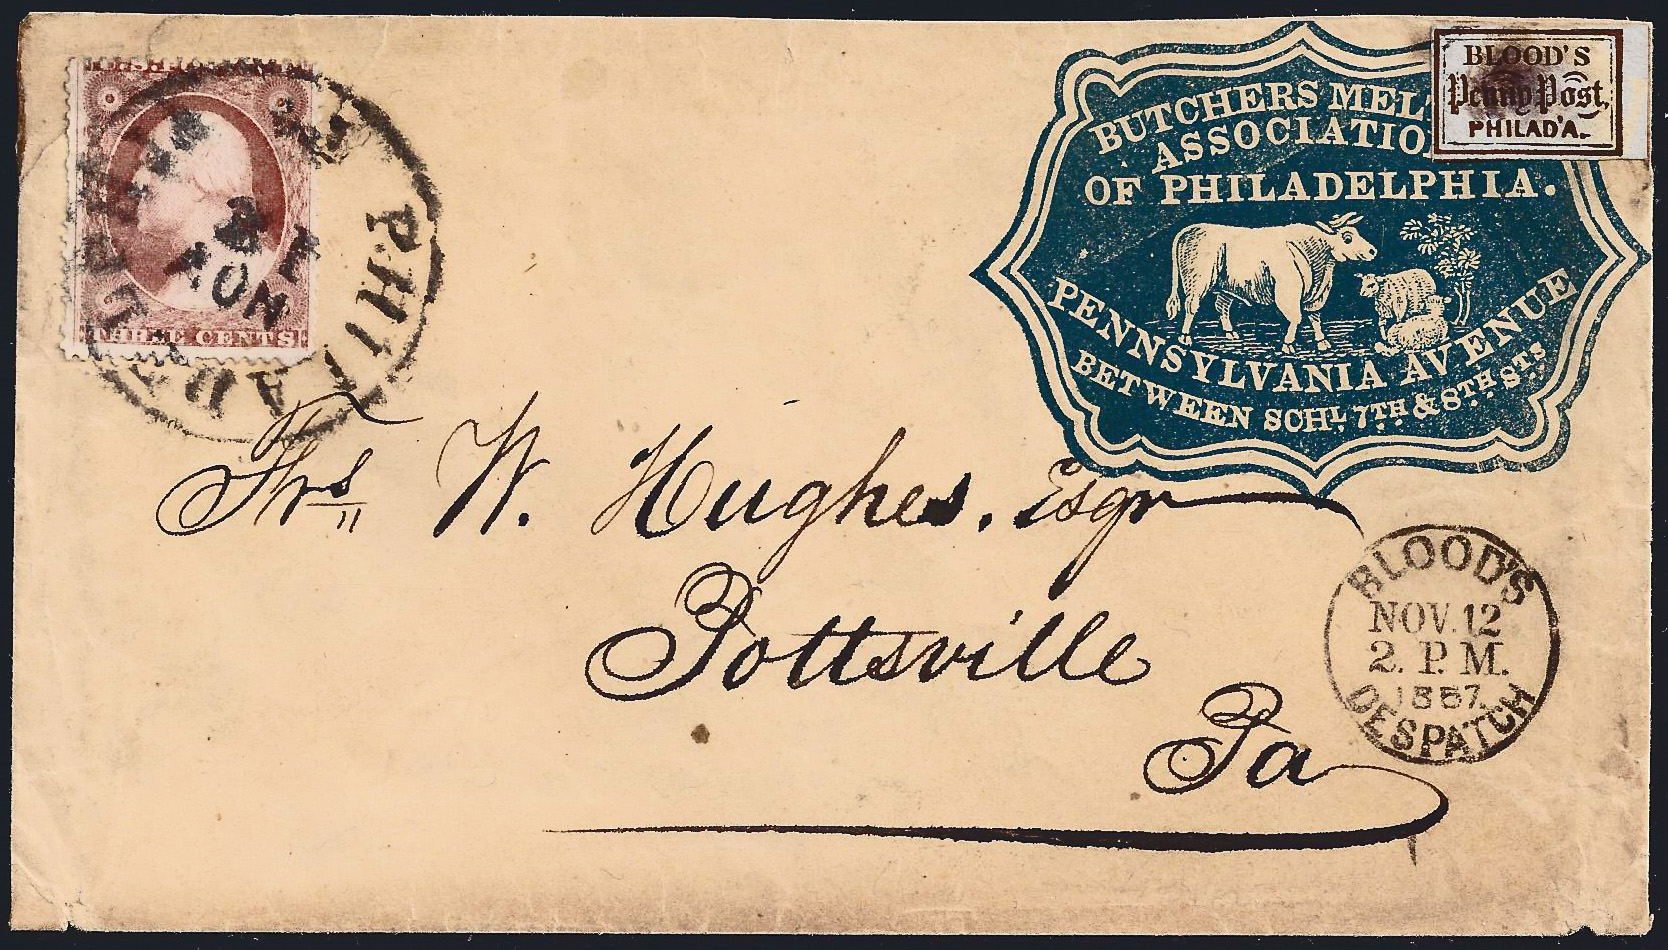 THREE CENTS
PHILADELPHIA
NOV
BUTCHERS MEL
ASSOCIATIO
OF PHILADELPHIA.
PENNSYLVANIA AVENUE
BETWEEN SCHL. 7TH & 8TH STS
BLOOD'S
Penny Post,
PHILAD'A.
Frs W. Hughes, Esqr
Pottsville
Pa
BLOOD'S
NOV. 12
2. P. M.
1857.
DESPATCH